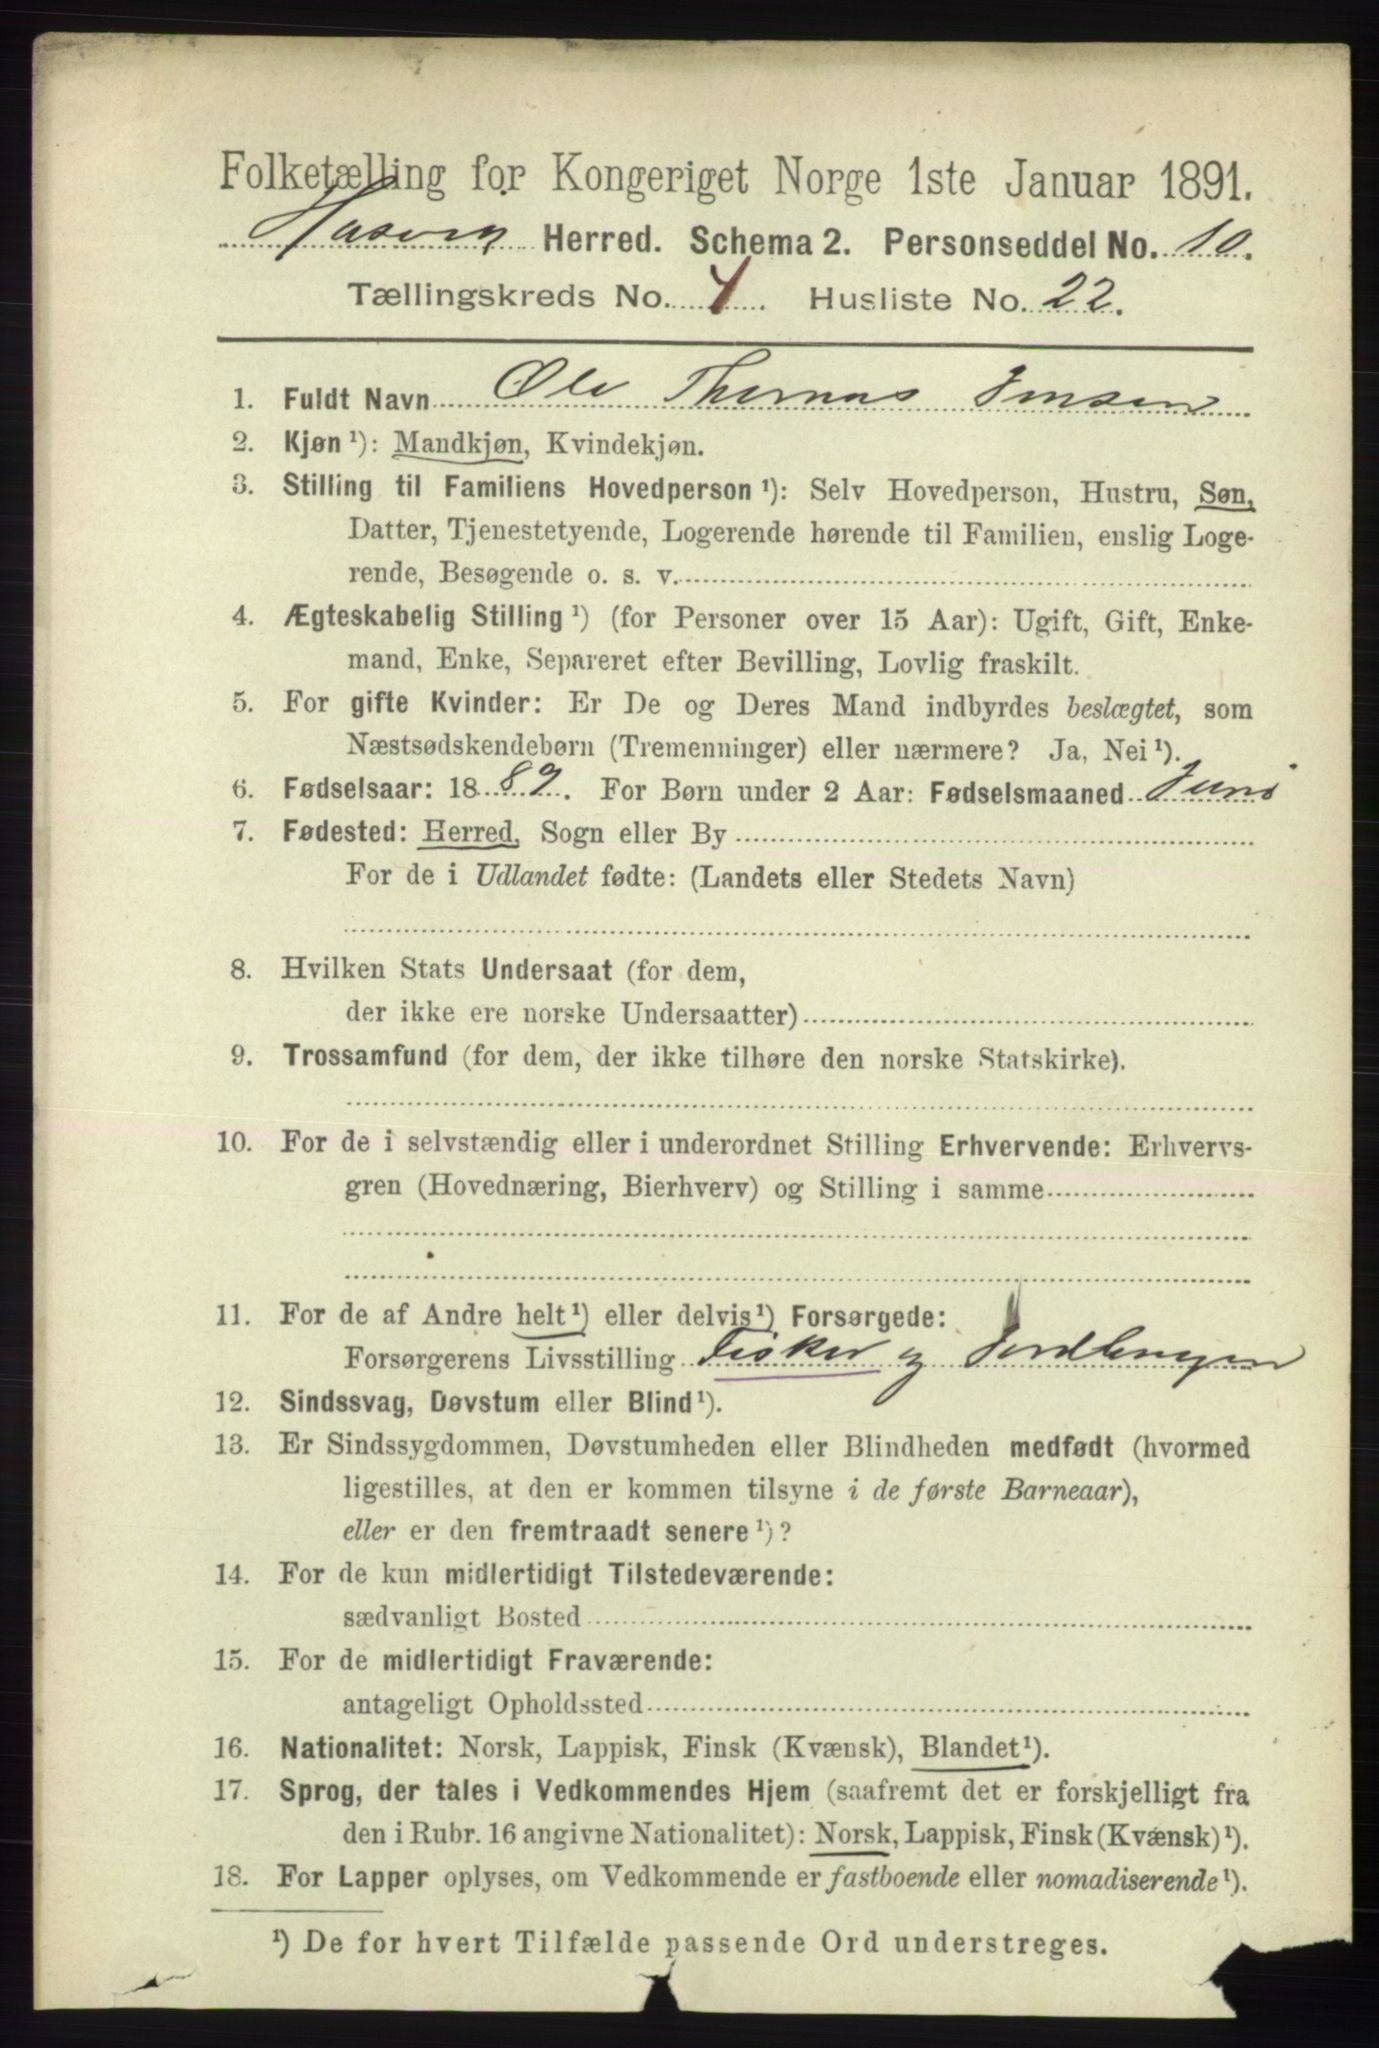 Folketælling for Kongeriget Norge 1ste Januar 1891.
Hasvik Herred. Schema 2. Personseddel No. 10.
Tællingskreds No. 4. Husliste No. 22.
1. Fuldt Navn Ole Thomas Jensen
2. Kjøn ¹): Mandkjøn, Kvindekjøn.
3. Stilling til Familiens Hovedperson ¹): Selv Hovedperson, Hustru, Søn,
Datter, Tjenestetyende, Logerende hørende til Familien, enslig Loge-
rende, Besøgende o. s. v.
4. Ægteskabelig Stilling ¹) (for Personer over 15 Aar): Ugift, Gift, Enke-
mand, Enke, Separeret efter Bevilling, Lovlig fraskilt.
5. For gifte Kvinder: Er De og Deres Mand indbyrdes beslægtet, som
Næstsødskendebørn (Tremenninger) eller nærmere? Ja, Nei ¹).
6. Fødselsaar: 1889. For Børn under 2 Aar: Fødselsmaaned Juni
7. Fødested: Herred, Sogn eller By
For de i Udlandet fødte: (Landets eller Stedets Navn)
8. Hvilken Stats Undersaat (for dem,
der ikke ere norske Undersaatter)
9. Trossamfund (for dem, der ikke tilhøre den norske Statskirke).
10. For de i selvstændig eller i underordnet Stilling Erhvervende: Erhvervs-
gren (Hovednæring, Bierhverv) og Stilling i samme
11. For de af Andre helt ¹) eller delvis ¹) Forsørgede:
Forsørgerens Livsstilling Fisker og Jordbruger
12. Sindssvag, Døvstum eller Blind ¹).
13. Er Sindssygdommen, Døvstumheden eller Blindheden medfødt (hvormed
ligestilles, at den er kommen tilsyne i de første Barneaar),
eller er den fremtraadt senere ¹)?
14. For de kun midlertidigt Tilstedeværende:
sædvanligt Bosted
15. For de midlertidigt Fraværende:
antageligt Opholdssted
16. Nationalitet: Norsk, Lappisk, Finsk (Kvænsk), Blandet ¹).
17. Sprog, der tales i Vedkommendes Hjem (saafremt det er forskjelligt fra
den i Rubr. 16 angivne Nationalitet): Norsk, Lappisk, Finsk (Kvænsk) ¹).
18. For Lapper oplyses, om Vedkommende er fastboende eller nomadiserende ¹).
¹) De for hvert Tilfælde passende Ord understreges.